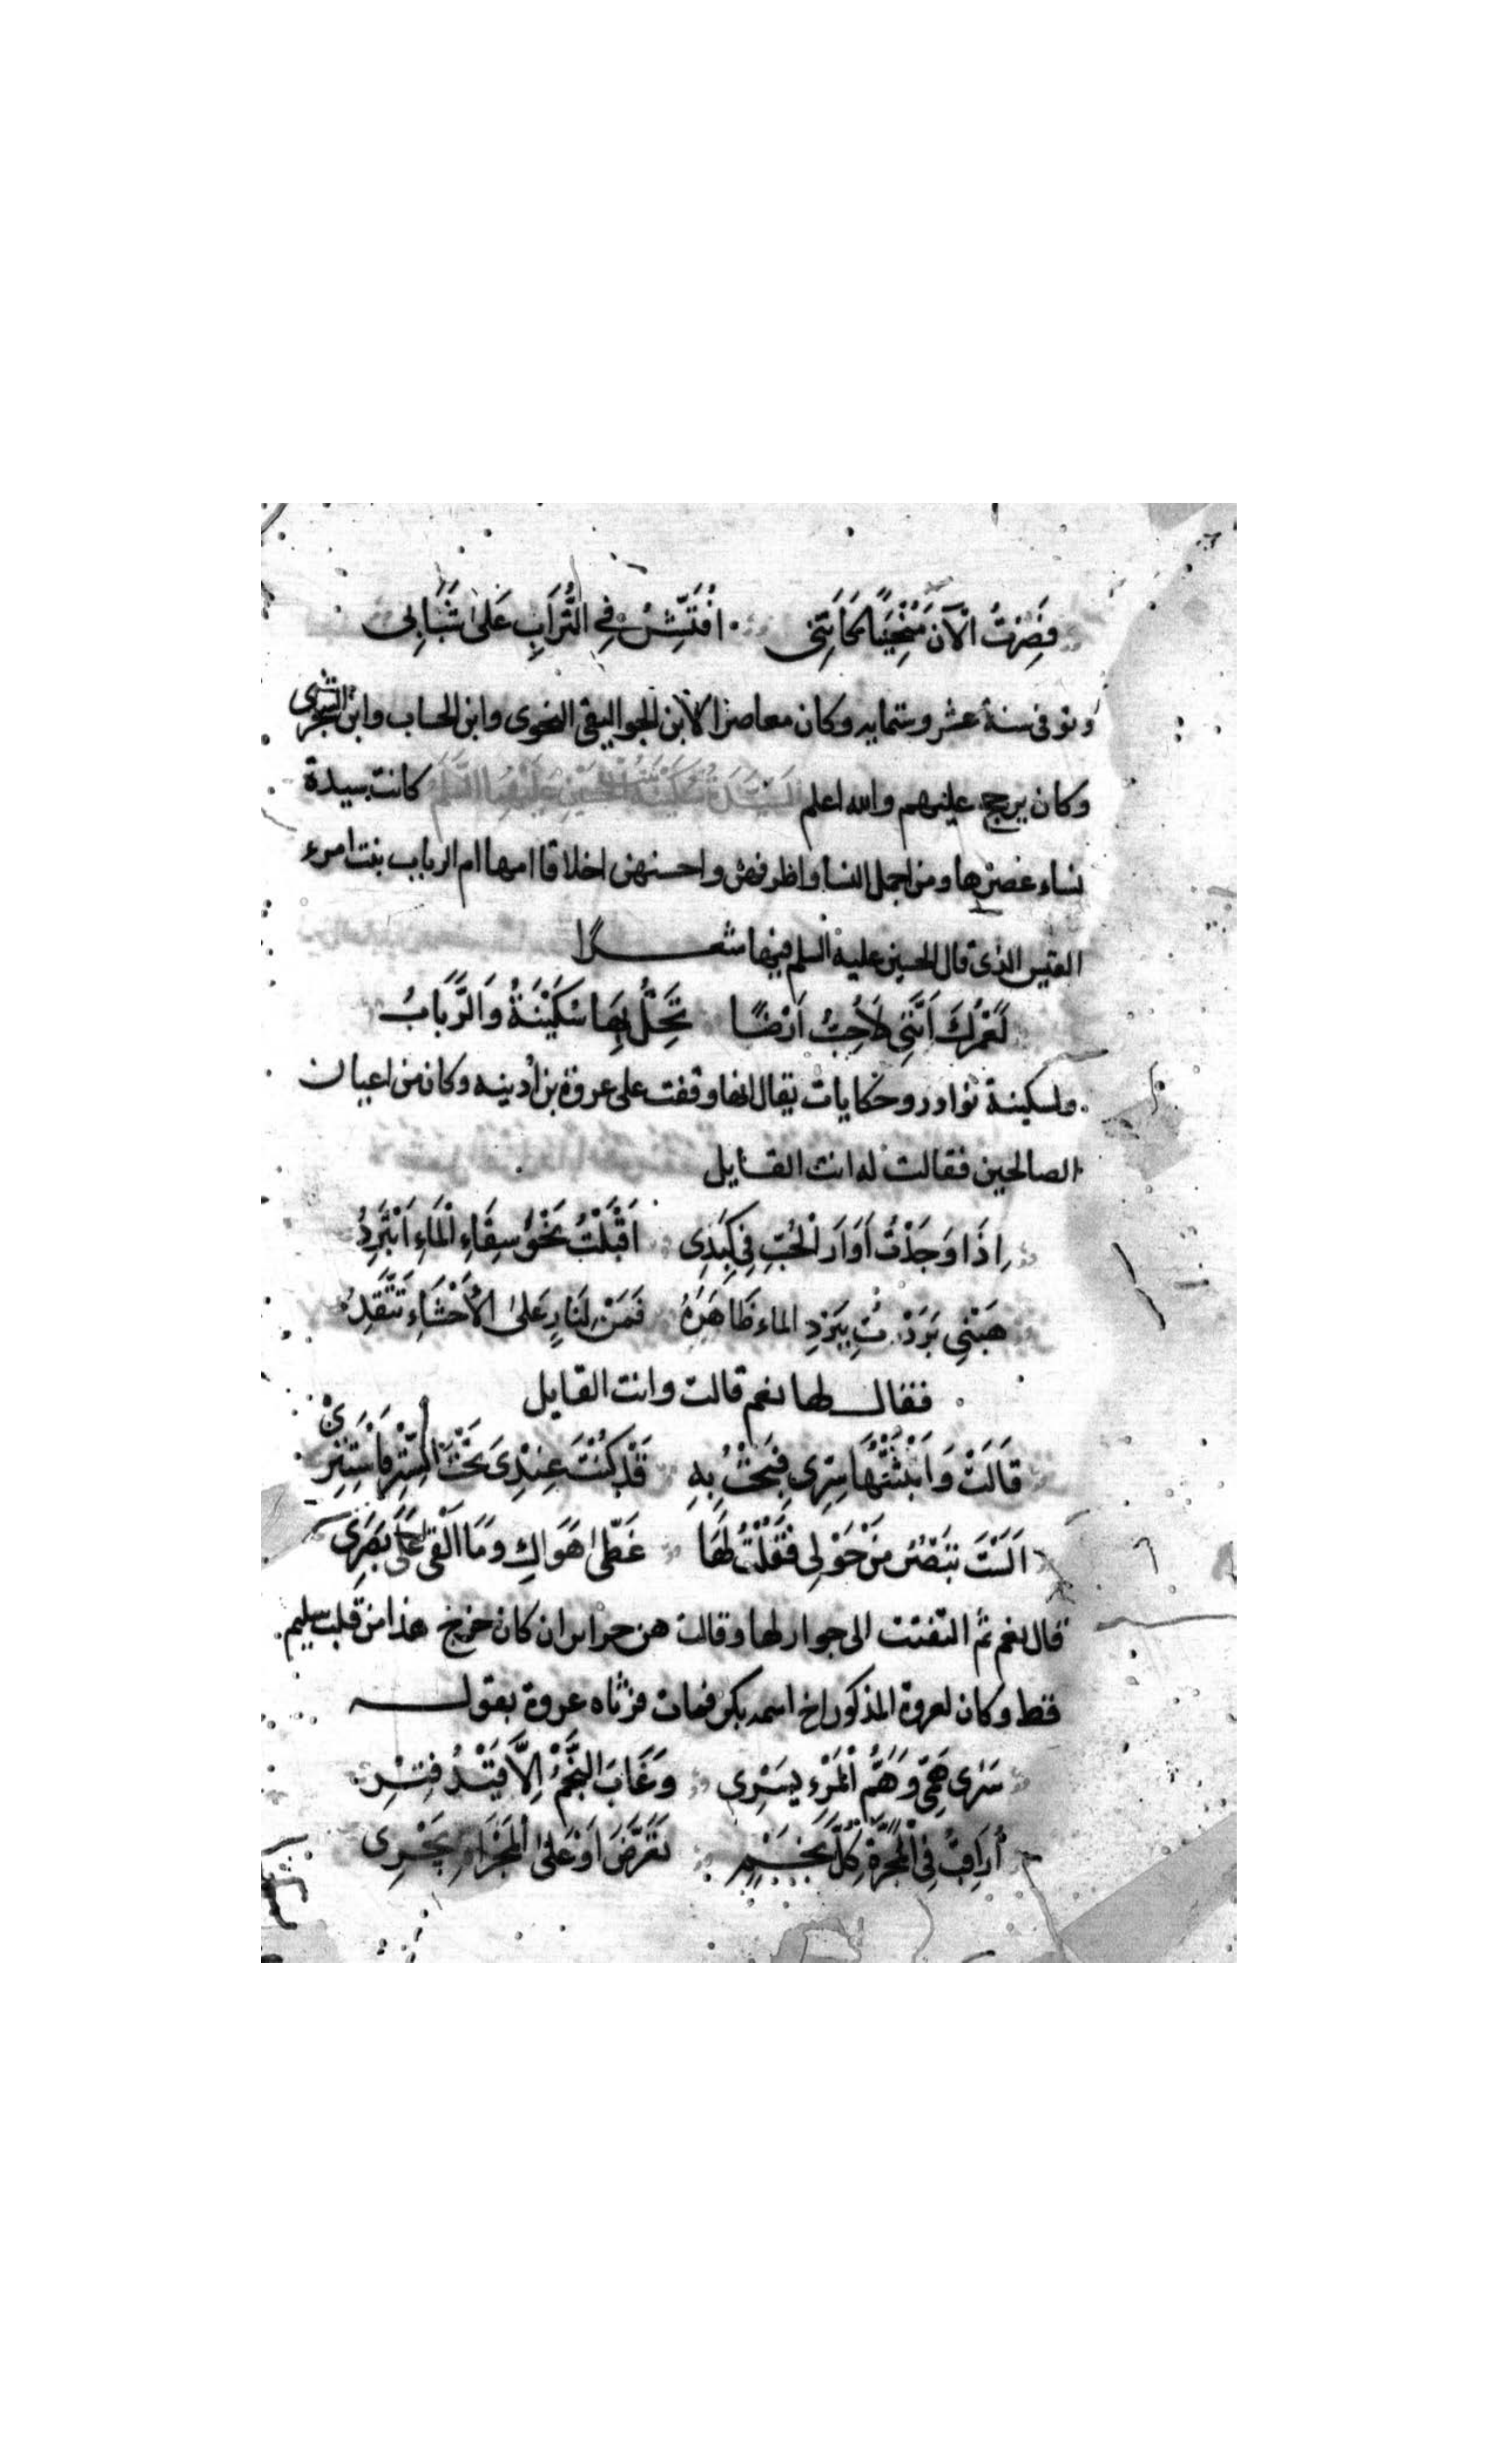 فَصِرْتُ الْآنَ مُنْحَنِيًا كَأَنِّي أُفَتِّشُ فِي التُّرَابِ عَلَىٰ شَبَابِي
وتوفى سنة عشر وستمايه وكان معاصرا لابن الجواليقى النحوى وابن الخشاب وابن الشجرى
وكان يرجح عليهم والله اعلم السَّيِّدَة سُكَيْنَة بنت الحُسَيْنِ عَلَيْهِمَا السَّلَم كانت سيدة
نساء عصرها ومن اجمل النسا واظرفهن واحسنهن اخلاقا امها ام الرباب بنت امرء
القيس الذى قال الحسين عليه السلم فيها شعرا
لَعَمْرُكَ اَنَّنِى لَاُحِبُّ اَرْضًا تَحِلُّ بِهَا سُكَيْنَةُ وَالرَّبَابُ
ولسكينة نوادر وحكايات يقال انها وقفت على عروة بن أدينه وكان من اعيان
الصالحين فقالت له انت القايل
اِذَا وَجَدْتُ أَوَارَ الْحُبِّ فِى كَبَدِى اَقْبَلْتُ نَحْوَ سِقَاءِ الْمَاءِ اَبْتَرِدُ
هَبْنِى بَرَدْتُ بِبَرْدِ الماء ظَاهِرَهُ فَمَنْ لِنَارٍ عَلىٰ الْاَحْشَاءِ تَتَّقِدُ
فقال لها نعم قالت وانت القايل
قَالَتْ وَاَبْثَثْتُهَا سِرِّى فَبُحْتُ بِهِ قَدْ كُنْتَ عِنْدِىَ تَحْتَ السِّتْرِ فَاسْتَتِرِىْ
اَلَسْتَ تَبْصُرُ مَنْ حَوْلِى فَقُلْتُ لَهَا غَطّىٰ هَوَاكِ وَمَا اَلْقى عَلَى بَصَرِى
قال نعم ثم التفتت الى جوار لها وقالت هن حراير ان كان خرج هذا من قلب سليم
قط وكان لعروة المذكور اخ اسمه بكر فمات فرثاه عروة بقوله
سَرٰى هَمِّى وَهَمُّ الْمَرْءِ يَسْرِى وَغَابَ النَّجْمُ اِلَّا قَيْدُ فِتْرِ
أُرَاقِبُ فِى الْمَجَرَّةِ كُلَّ نَجْمٍ تَعَرَّضَ اَوْ عَلىٰ الْمَجْرَاةِ يَجْرِى